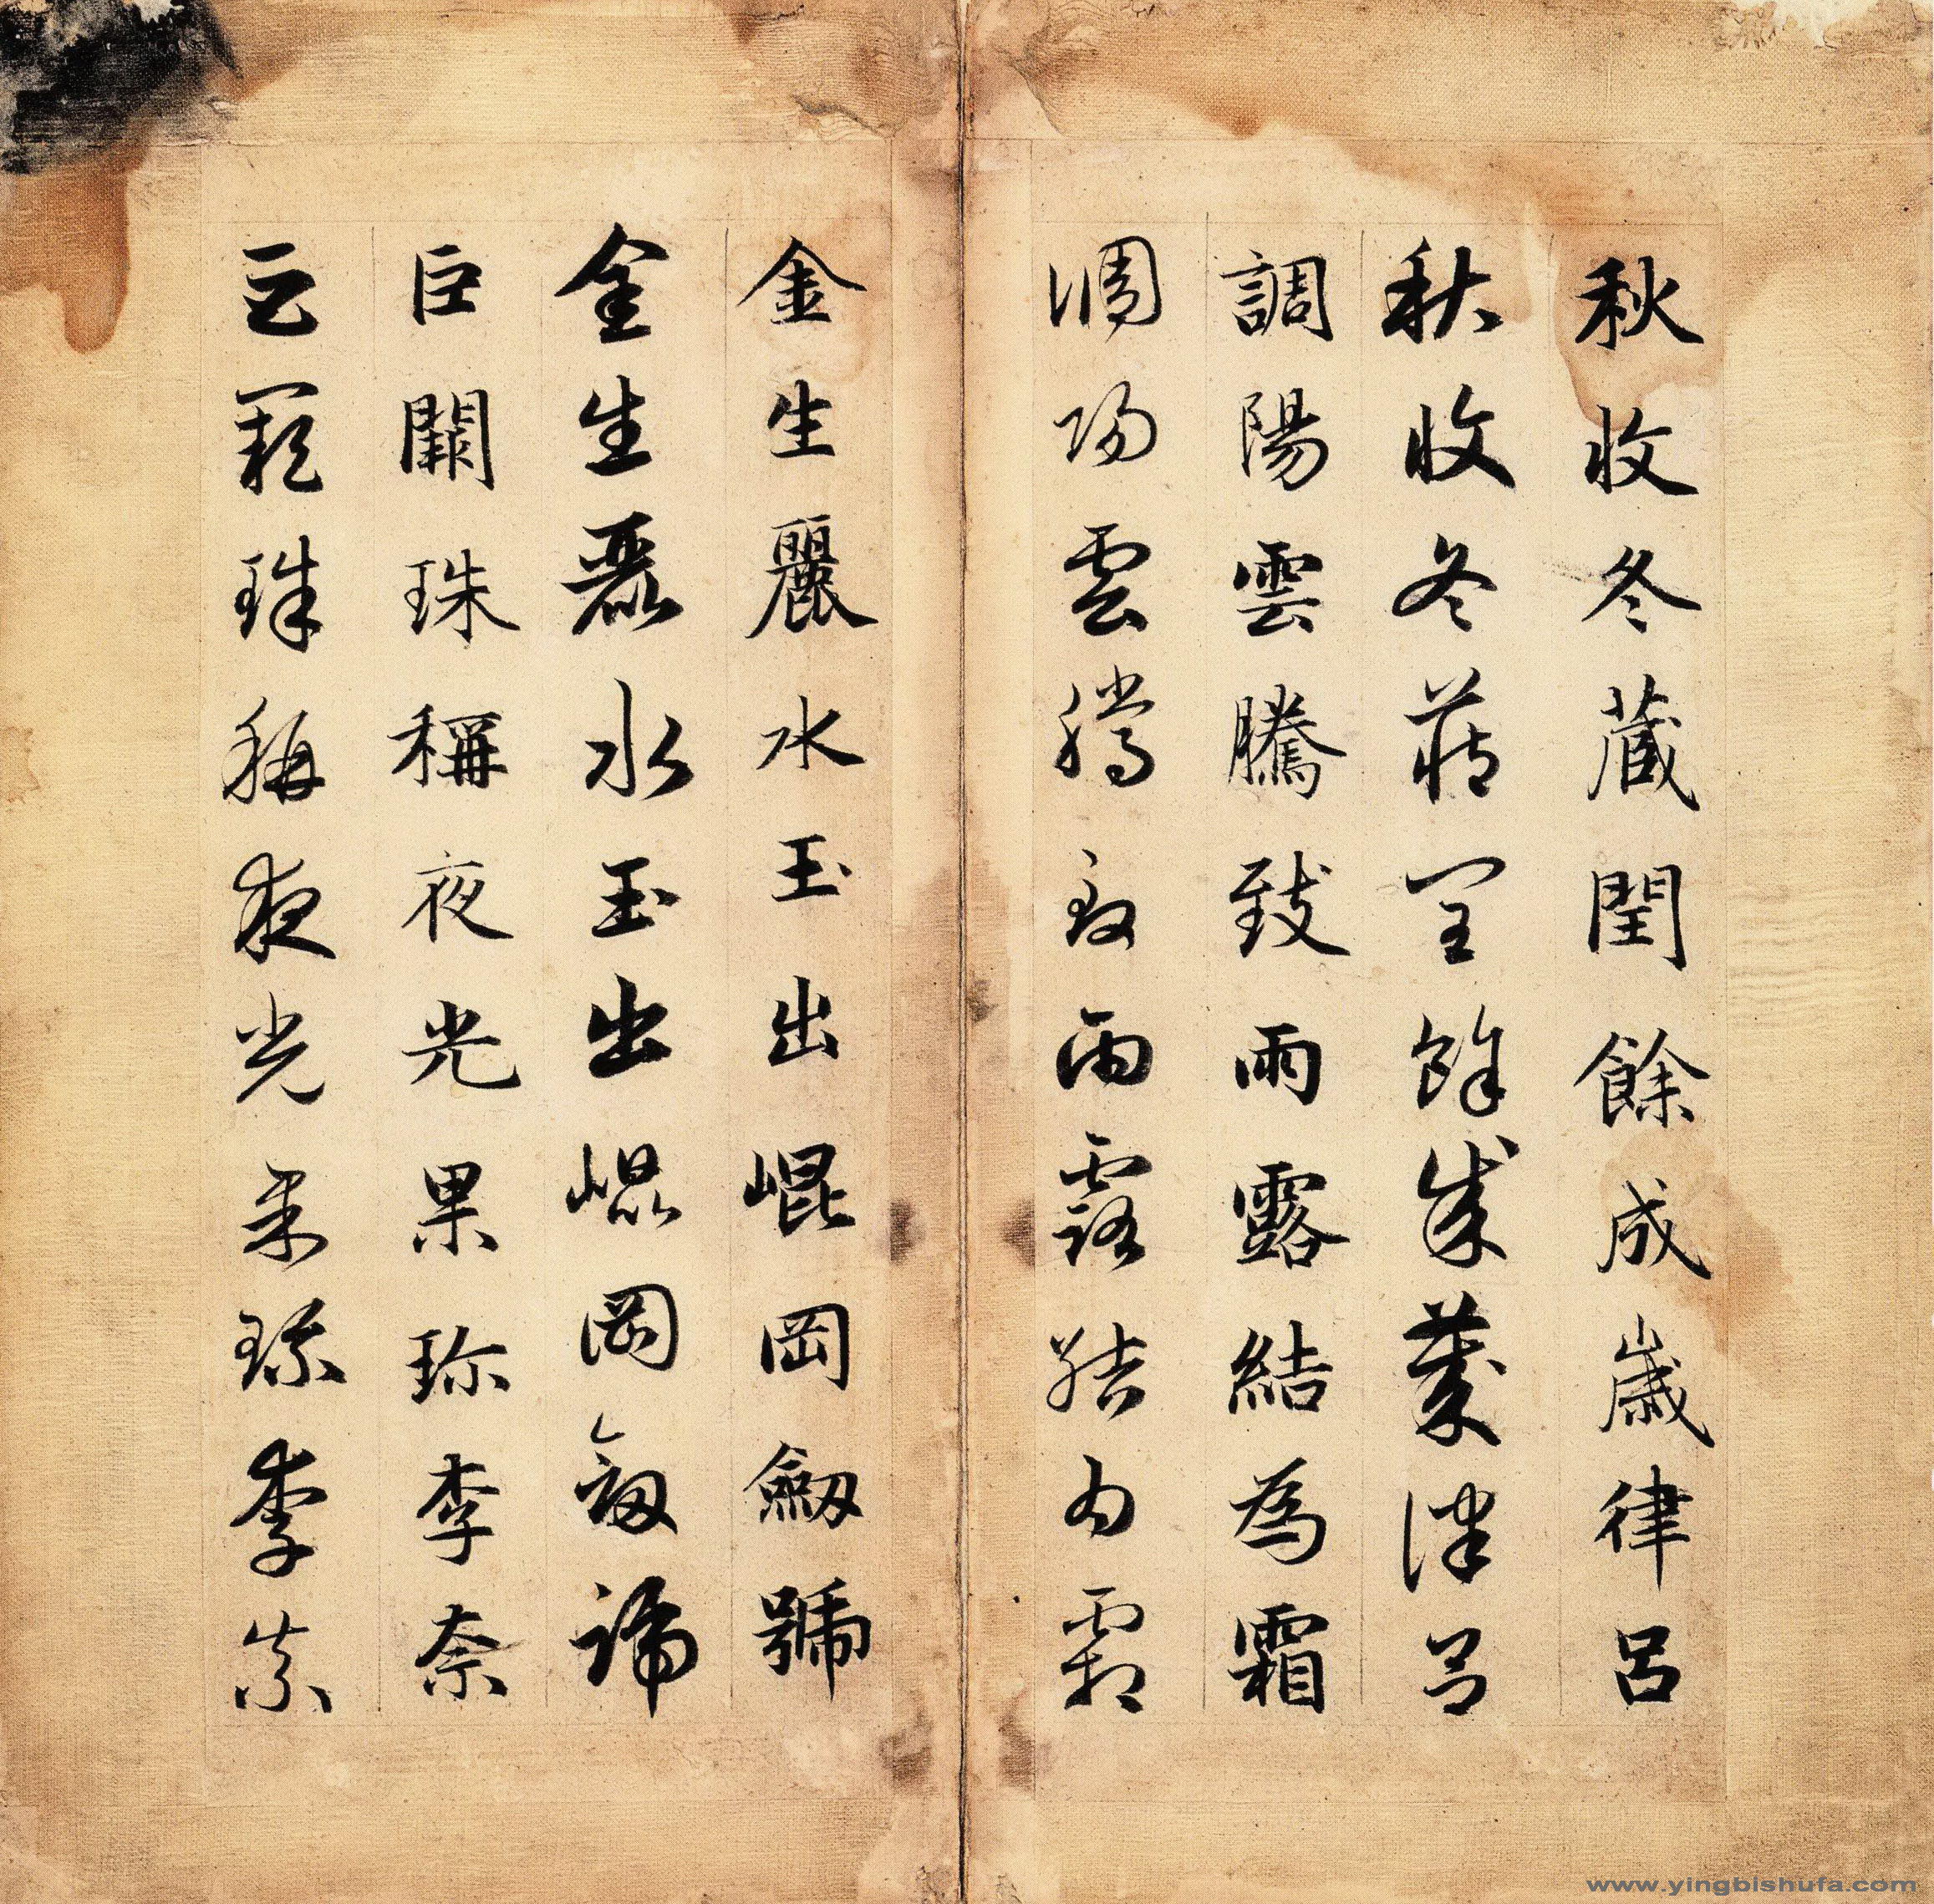 秋收冬藏閏餘成歲律呂
秋收冬藏閏餘成歲律呂
調陽雲騰致雨露結為霜
調陽雲騰致雨露結為霜
金生麗水玉出崐岡劒號
金生麗水玉出崐岡劒號
巨闕珠稱夜光果珎李柰
巨闕珠稱夜光果珎李柰
www.yingbishufa.com